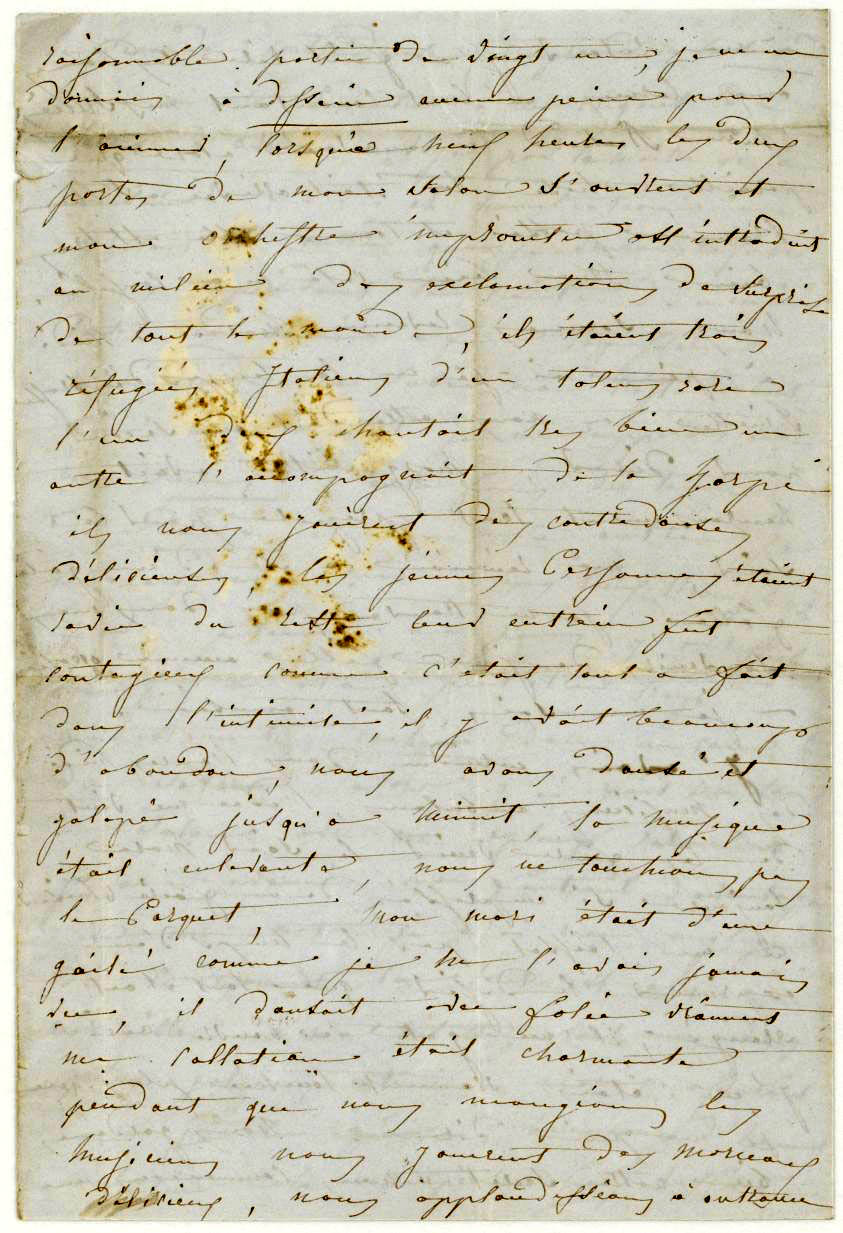 raisonnable partie de vingt un, je ne me
donnais à dessein aucune peine pour
l'animer, lorsque neuf heures les deux
portes de mon salon s'ouvrent et
mon orchestre impromptu est introduit
au milieu des exclamations de surprise
de tout le monde, ils étaient trois
réfugiés Italiens d'un talens rare
l'un deux chantait tres bien un
autre l'accompagnait de la harpe
ils nous jouèrent des contredanses
délicieuses, les jeunes Personnes étaient
ravie du reste leur entrain fut
contagieux comme c'etait tout a fait
dans l'intimité, il y avait beaucoup
d'abandon, nous avons dansé et
galopé jusqu'a minuit, la musique
était enlevante, nous ne touchions pas
le Parquet, mon mari était d'une
gaité comme je ne l'avais jamais
vue, il dansait avec folie vraiment
ma collation était charmante
pendant que nous mangions les
musiciens nous jouerent des morceaux
délicieux, nous applaudissions à outrance